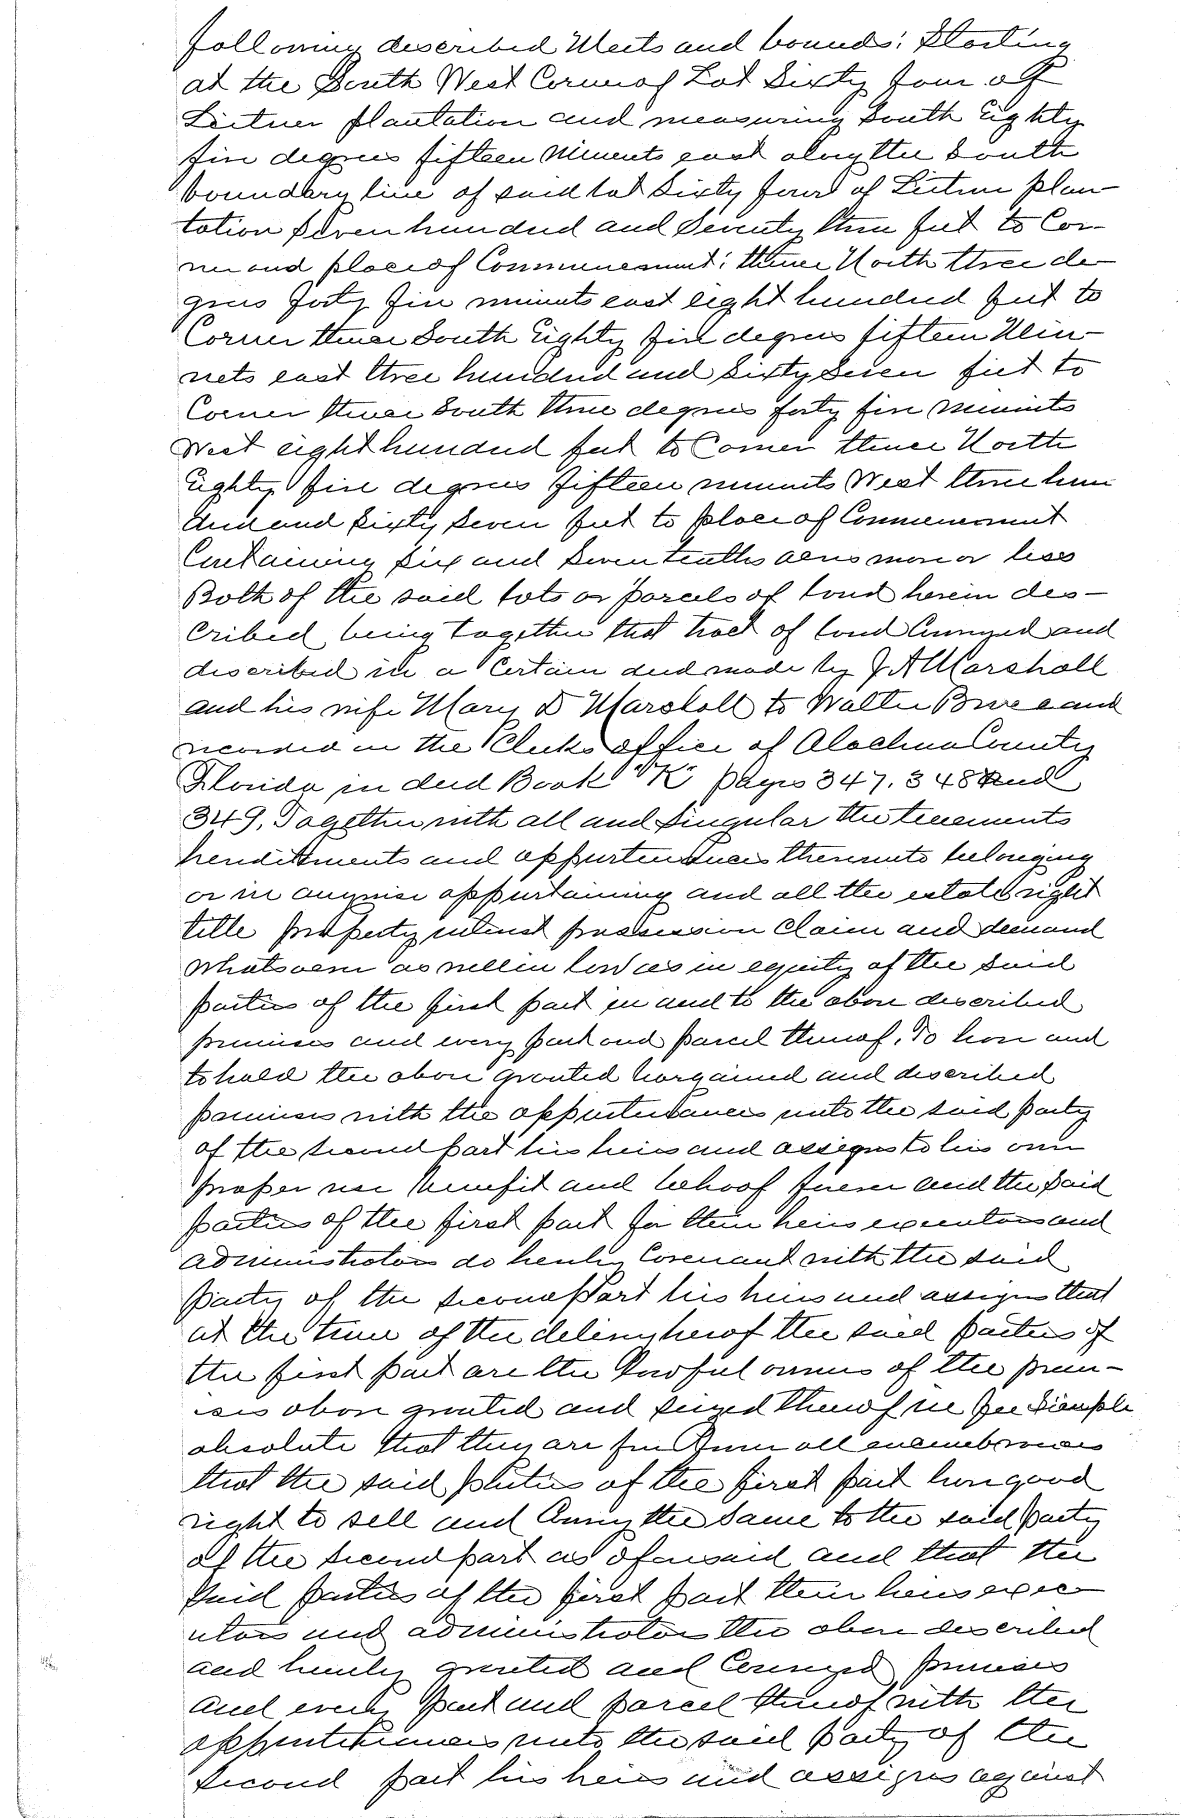 following described Meets and bounds: Starting
at the South West Corner of Lot Sixty four of
Leitner plantation and measuring South Eighty
five degrees fifteen Minuets east along the South
boundary line of said lot Sixty four of Leitner plan-
tation Seven hundred and Seventy three feet to Cor-
ner and place of Commencement; thence North three de-
grees forty five minuets east eight hundred feet to
Corner thence South Eighty five degrees fifteen Min-
uets east three hundred and Sixty Seven feet to
Corner thence South three degrees forty five minuets
West eight hundred feet to Corner thence North
Eighty five degrees fifteen minuets West three hun
dred and Sixty Seven feet to place of Commencement
Containing Six and Seven tenths acres more or less
Both of the said lots or parcels of land herein des-
cribed being together that tract of land Conveyed and
described in a Certain deed made by J A Marshall
and his wife Mary D Marshall to Walter and
recorded in the Clerks office of Alachua County
Florida in deed Book "K" pages 347. 348 and
349. Together with all and Singular the tenements
hereditments and appurtenances thereunto belonging
or in anywise appurtaining and all the estate right
title property interest possession Claim and demand
whatsoever as well in law as in equity of the Said
parties of the first part in and to the above described
premises and every part and parcel thereof. To have and
to hold the above granted bargained and described
premises with the appurtenances unto the said party
of the second part his heirs and assigns to his own
proper use benefit and behoof forever and the said
parties of the first part for their heirs executors and
administrators do hereby Covenant with the said
party of the second Part his heirs and assigns that
at the time of the delivery hereof the said parties of
the first part are the lawful owners of the prem-
ises above granted and seized thereof in fee Simple
absolute that they are free from all encumbrances
that the said parties of the first part have good
right to sell and Convey the Same to the said party
of the second part as aforesaid and that the
Said parties of the first part their heirs exec-
utors and administrators the above described
and hereby granted and Conveyed premises
and every part and parcel thereof with the
appurtenances unto the said party of the
Second part his heirs and assigns against